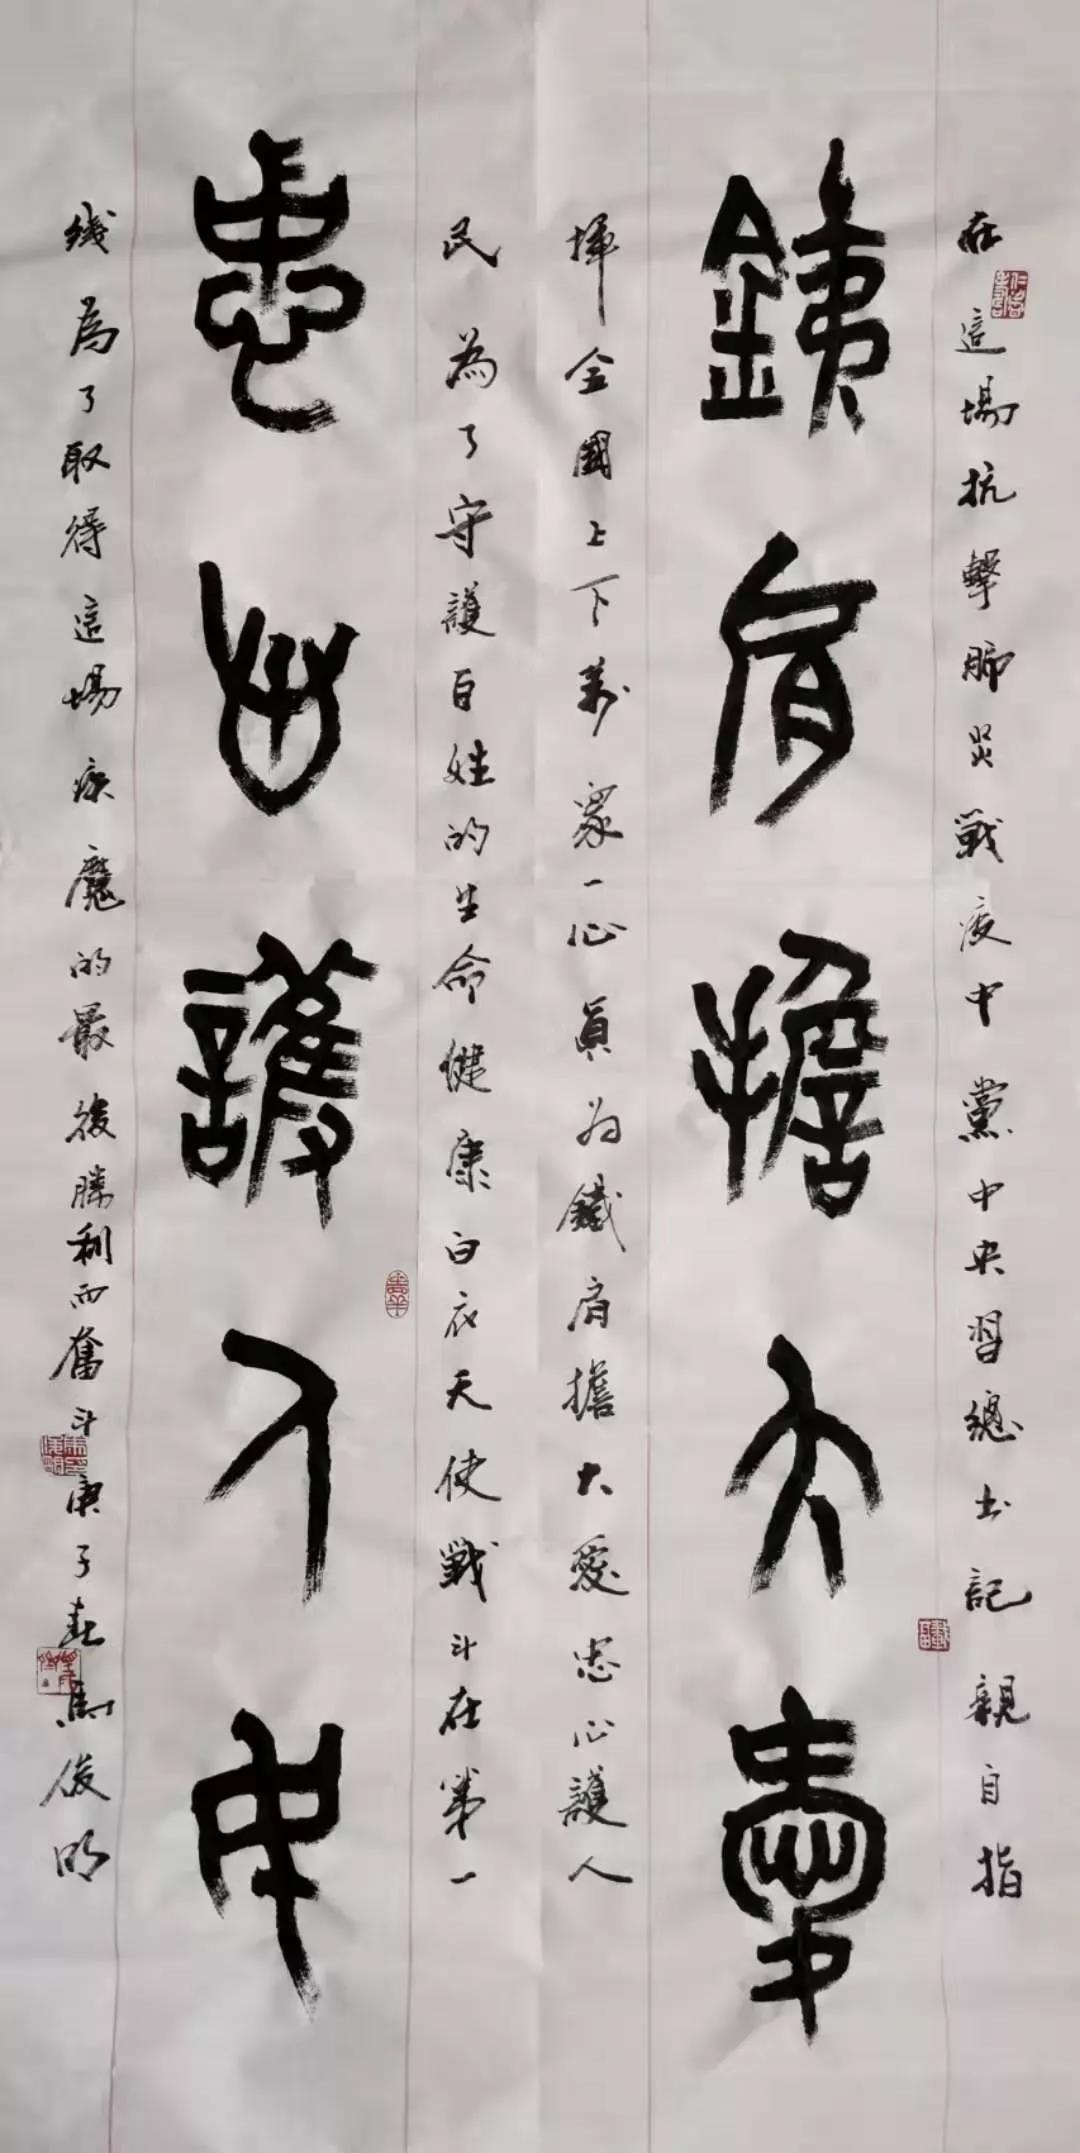 在這場抗擊肺炎戰疫中黨中央習總书記親自指
銕肩擔大愛
揮全國上下萬眾一心真为鐵肩擔大愛忠心護人
民為了守護百姓的生命健康白衣天使戰斗在第一
忠心護人民
线為了取得這場疾魔的最後勝利而奮斗庚子春馬俊明